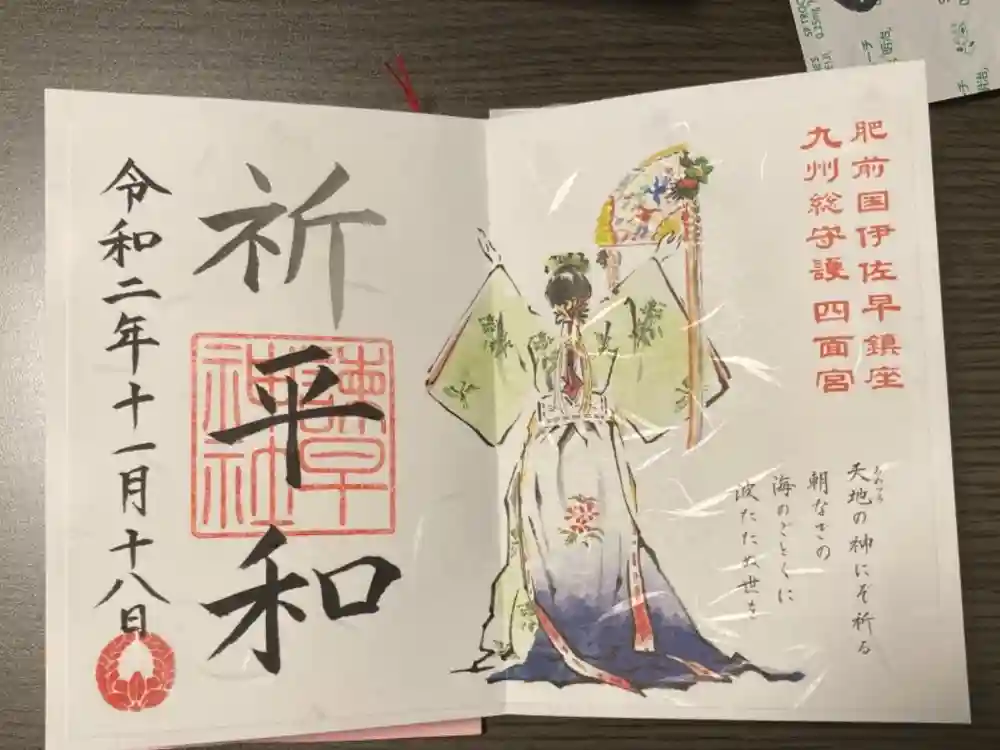 肥前国伊佐早鎮座
九州総守護 四面宮
天地の神にぞ祈る
あめつち
朝なぎの
海のごとくに
波たたぬ世を
祈
平
和
諫早
神社
令和二年十一月十八日